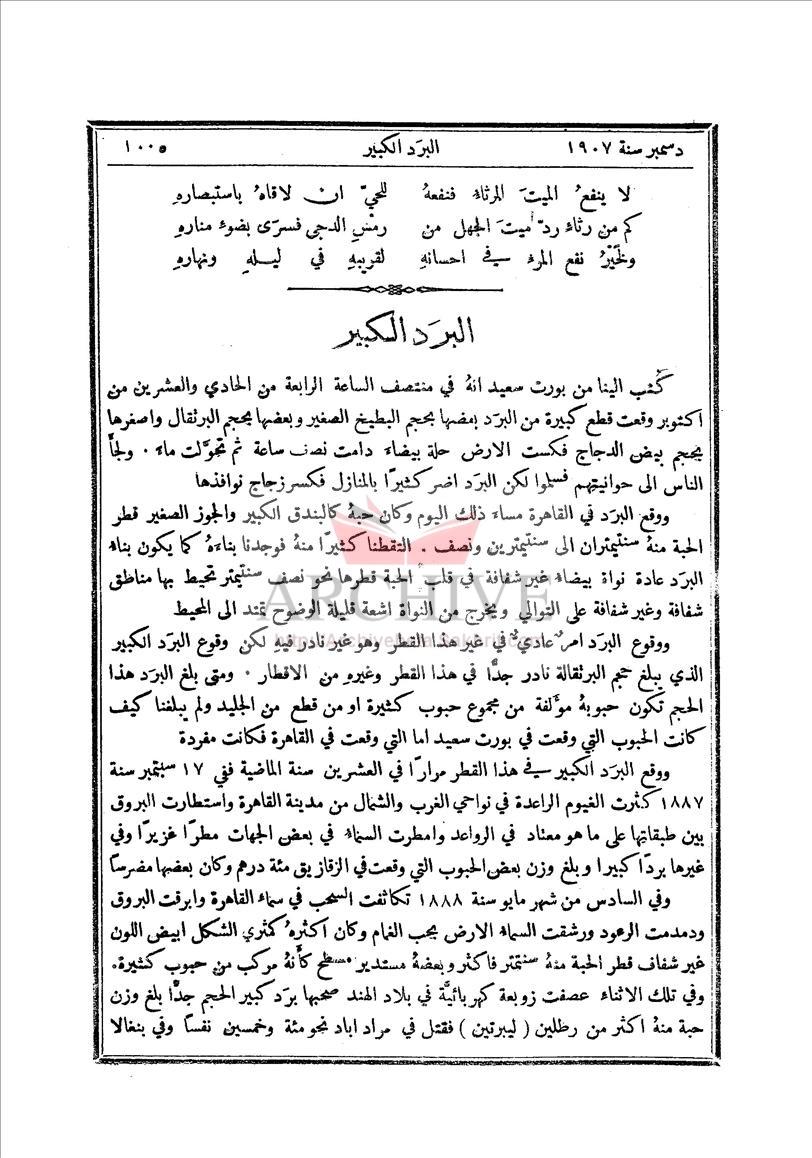 دسمبر سنة ١٩٠٧ البرَد الكبير ١٠٠٥
لا ينفعُ الميتَ المرثاة فنفعهُ للحيّ ان لاقاهُ باستبصارهِ
كم من رثاءَ ردّ ميتَ الجهل من رمْسِ الدجى فسرَى بضوءَ منارهِ
ولخَيْرُ نفع المرءَ في احسانهِ لقريبهِ في ليلهِ ونهارهِ
البرَد الكبير
كُتب الينا من بورت سعيد انهُ في منتصف الساعة الرابعة من الحادي والعشرين من
اكتوبر وقعت قطع كبيرة من البرَد بعضها بحجم البطيخ الصغير وبعضها بحجم البرثقال واصغرها
بحجم بيض الدجاج فكست الارض حلة بيضاءَ دامت نصف ساعة ثم تحوَّلت ماءً . ولجأَ
الناس الى حوانيتهم فسلموا لكن البرَد اضر كثيرًا بالمنازل فكسر زجاج نوافذها
ووقع البرَد في القاهرة مساءَ ذلك اليوم وكان حبهُ كالبندق الكبير والجوز الصغير قطر
الحبة منهُ سنتيمتران الى سنتيمترين ونصف . التقطنا كثيرًا منهُ فوجدنا بناءَهُ كما يكون بناءُ
البرَد عادة نواة بيضاءَ غير شفافة في قلب الحبة قطرها نحو نصف سنتيمتر تحيط بها مناطق
شفافة وغير شفافة على التوالي ويخرج من النواة اشعة قليلة الوضوح تمتد الى المحيط
ووقوع البرَد امرٌ عاديٌّ في غير هذا القطر وهو غير نادر فيهِ لكن وقوع البرَد الكبير
الذي يبلغ حجم البرثقالة نادر جدًّا في هذا القطر وغيرهِ من الاقطار . ومتى بلغ البرَد هذا
الحجم تكون حبوبهُ مؤلفة من مجموع حبوب كثيرة او من قطع من الجليد ولم يبلغنا كيف
كانت الحبوب التي وقعت في بورت سعيد اما التي وقعت في القاهرة فكانت مفردة
ووقع البرَد الكبير في هذا القطر مرارًا في العشرين سنة الماضية ففي ١٧ سبتمبر سنة
١٨٨٧ كثرت الغيوم الراعدة في نواحي الغرب والشمال من مدينة القاهرة واستطارت البروق
بين طبقاتها على ما هو معتاد في الرواعد وامطرت السماءُ في بعض الجهات مطرًا غزيرًا وفي
غيرها بردًا كبيرا وبلغ وزن بعض الحبوب التي وقعت في الزقازيق مئة درهم وكان بعضها مضرسًا
وفي السادس من شهر مايو سنة ١٨٨٨ تكاثفت السحب في سماءَ القاهرة وابرقت البروق
ودمدمت الرعود ورشقت السماءُ الارض بحب الغمام وكان اكثرهُ كمثري الشكل ابيض اللون
غير شفاف قطر الحبة منهُ سنتمتر فاكثر وبعضهُ مستدير مسطح كأَنهُ مركب من حبوب كثيرة.
وفي تلك الاثناء عصفت زوبعة كهربائيَّة في بلاد الهند صحبها برَد كبير الحجم جدًّا بلغ وزن
حبة منهُ اكثر من رطلين ( ليبرتين ) فقتل في مراد اباد نحو مئة وخمسين نفسًا وفي بنغالا
ARCHIVE